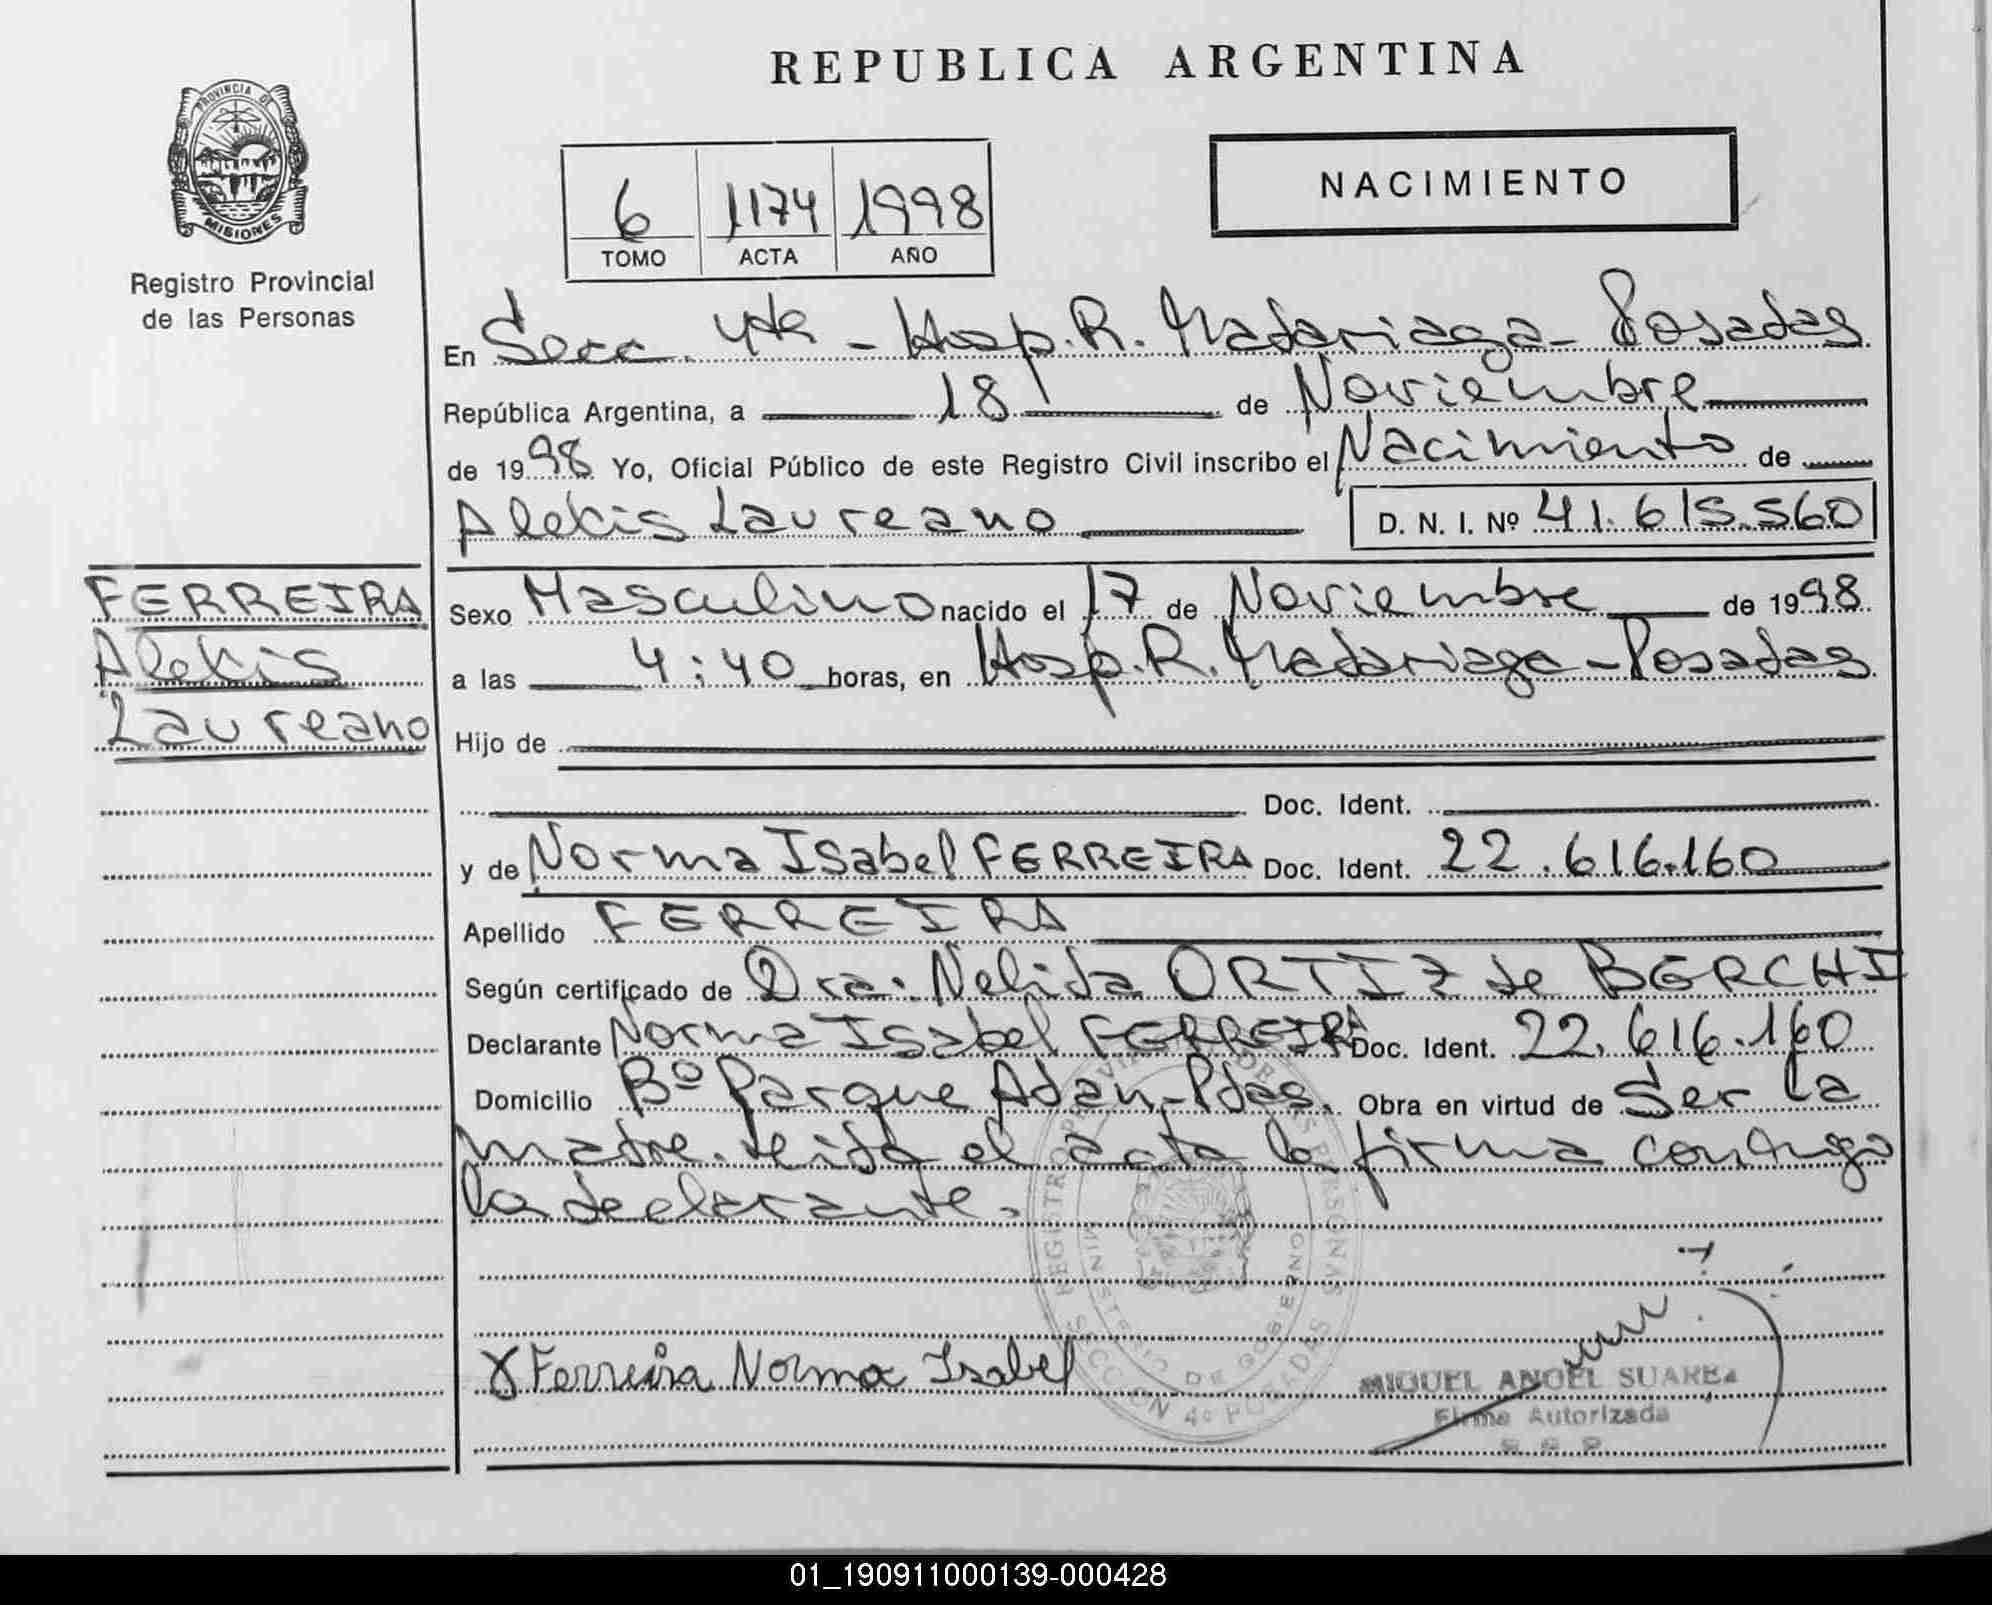 REPUBLICA ARGENTINA
PROVINCIA DE
MISIONES
Registro Provincial
de las Personas
NACIMIENTO
6 1174 1998
TOMO ACTA AÑO
En Secc. 4ta - Hosp. R. Madariaga - Posadas
República Argentina, a 18 de Noviembre
de 1998 Yo, Oficial Público de este Registro Civil inscribo el Nacimiento de
Alekis Laureano D. N. I. Nº 41.615.560
FERREIRA
Alekis
Laureano
Sexo Masculino nacido el 17 de Noviembre de 1998
a las 4:40 horas, en Hosp. R. Madariaga - Posadas
Hijo de
Doc. Ident.
y de Norma Isabel FERREIRA Doc. Ident. 22.616.160
Apellido FERREIRA
Según certificado de Dra. Nelida ORTIZ de BERCHI
Declarante Norma Isabel FERREIRA Doc. Ident. 22.616.160
Domicilio Bº Parque Adan - Pdas. Obra en virtud de Ser la
madre. Leida el acta la firma conmigo
la declarante.
REGISTRO PROVINCIAL DE LAS PERSONAS
MINISTERIO DE GOBIERNO
SECCION 4º POSADAS
Ferreira Norma Isabel
MIGUEL ANGEL SUAREZ
Firma Autorizada
01_190911000139-000428